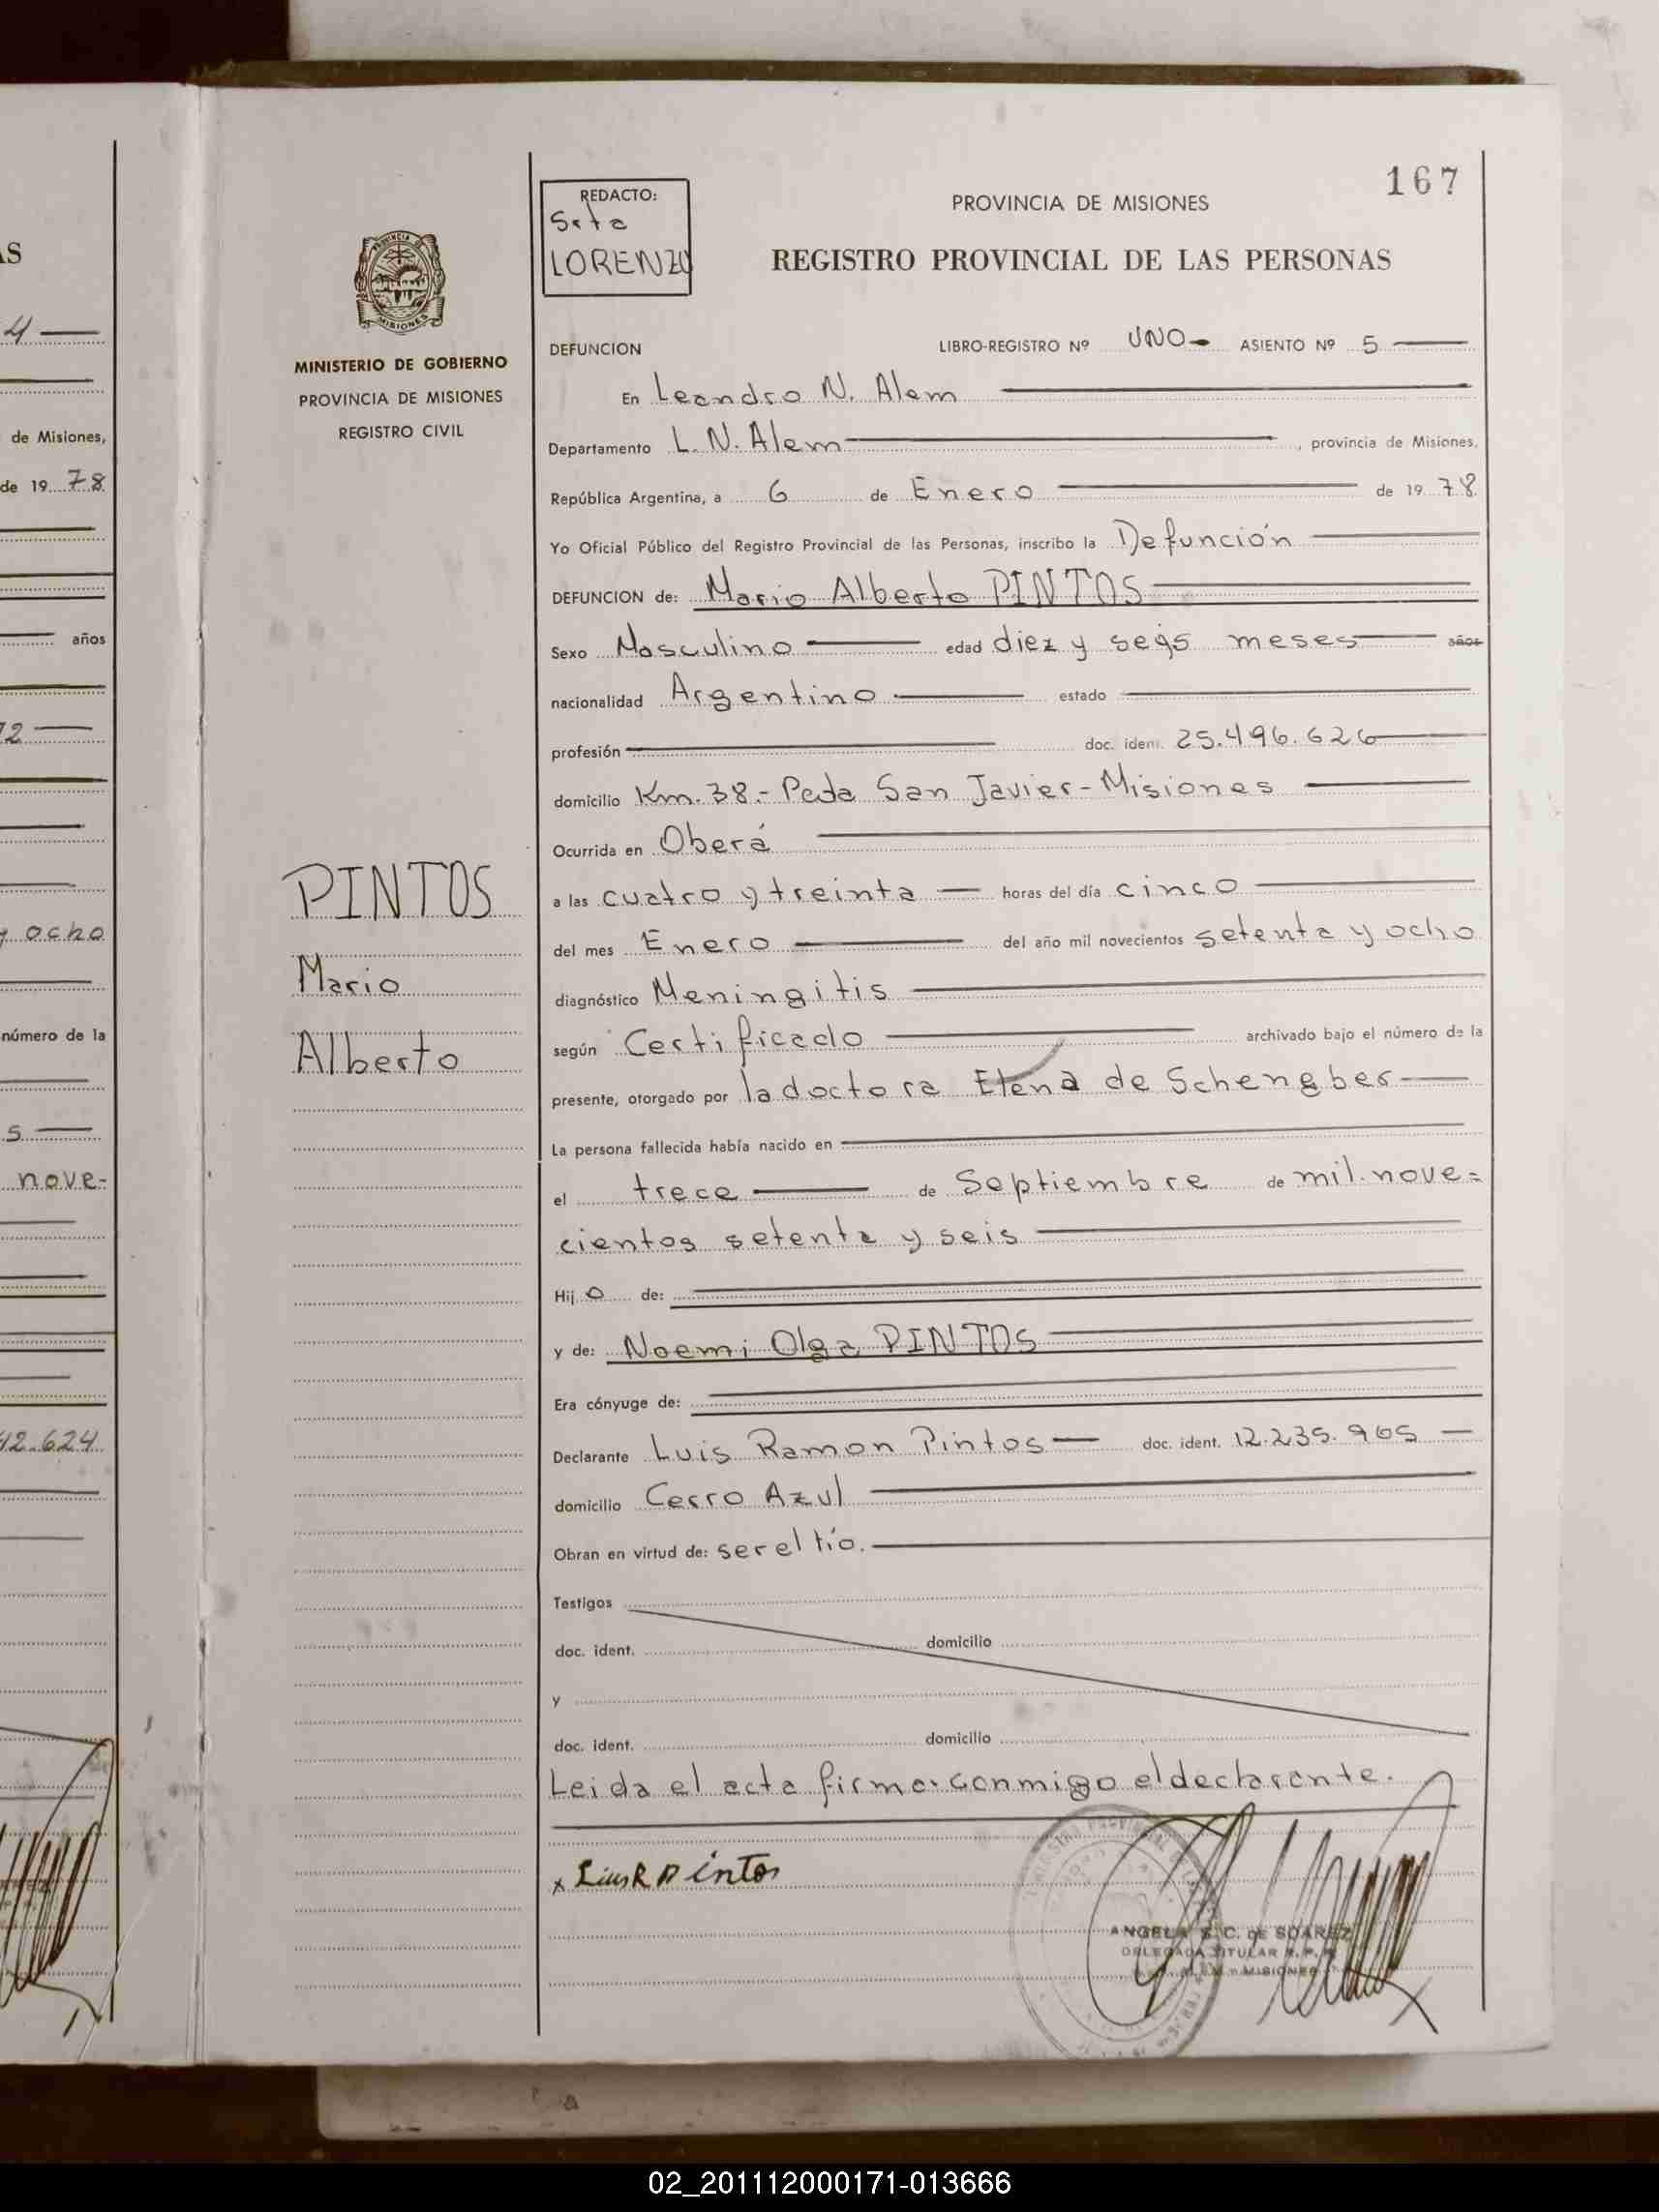 167
REDACTO:
Srta
LORENZO
PROVINCIA DE MISIONES
REGISTRO PROVINCIAL DE LAS PERSONAS
MINISTERIO DE GOBIERNO
PROVINCIA DE MISIONES
REGISTRO CIVIL
DEFUNCION LIBRO-REGISTRO Nº UNO- ASIENTO Nº 5
En Leandro N. Alem
Departamento L. N. Alem, provincia de Misiones,
República Argentina, a 6 de Enero de 1978
Yo Oficial Público del Registro Provincial de las Personas, inscribo la Defunción
DEFUNCION de: Mario Alberto PINTOS
Sexo Masculino edad diez y seis meses años
nacionalidad Argentino estado
profesión doc. ident. 25.496.626
domicilio Km. 38.- Pcda San Javier-Misiones
Ocurrida en Oberá
a las cuatro y treinta horas del día cinco
del mes Enero del año mil novecientos setenta y ocho
diagnóstico Meningitis
según Certificado archivado bajo el número de la
presente, otorgado por la doctora Elena de Schengber
La persona fallecida había nacido en
el trece de Septiembre de mil nove=
cientos setenta y seis
Hijo de:
y de: Noemi Olga PINTOS
Era cónyuge de:
Declarante Luis Ramon Pintos doc. ident. 12.235.965
domicilio Cerro Azul
Obran en virtud de: ser el tío.
Testigos
doc. ident. domicilio
y
doc. ident. domicilio
Leida el acta firma conmigo el declarante.
x Luis R Pintos
ANGELA S. C. DE SOAREZ
DELEGADA TITULAR R. P. P.
MISIONES
PINTOS
Mario
Alberto
AS
4
de Misiones,
de 1978
años
72
y ocho
número de la
s
nove-
42.624
02_201112000171-013666